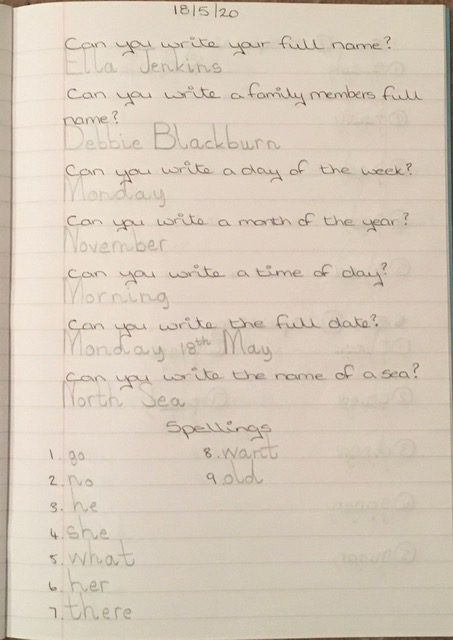 18/5/20
Can you write your full name?
Ella Jenkins
Can you write a family members full
name?
Debbie Blackburn
Can you write a day of the week?
Monday
Can you write a month of the year?
November
Can you write a time of day?
Morning
Can you write the full date?
Monday 18th May
Can you write the name of a sea?
North Sea
Spellings
1. go
2. no
3. he
4. she
5. what
6. her
7. there
8. want
9. old